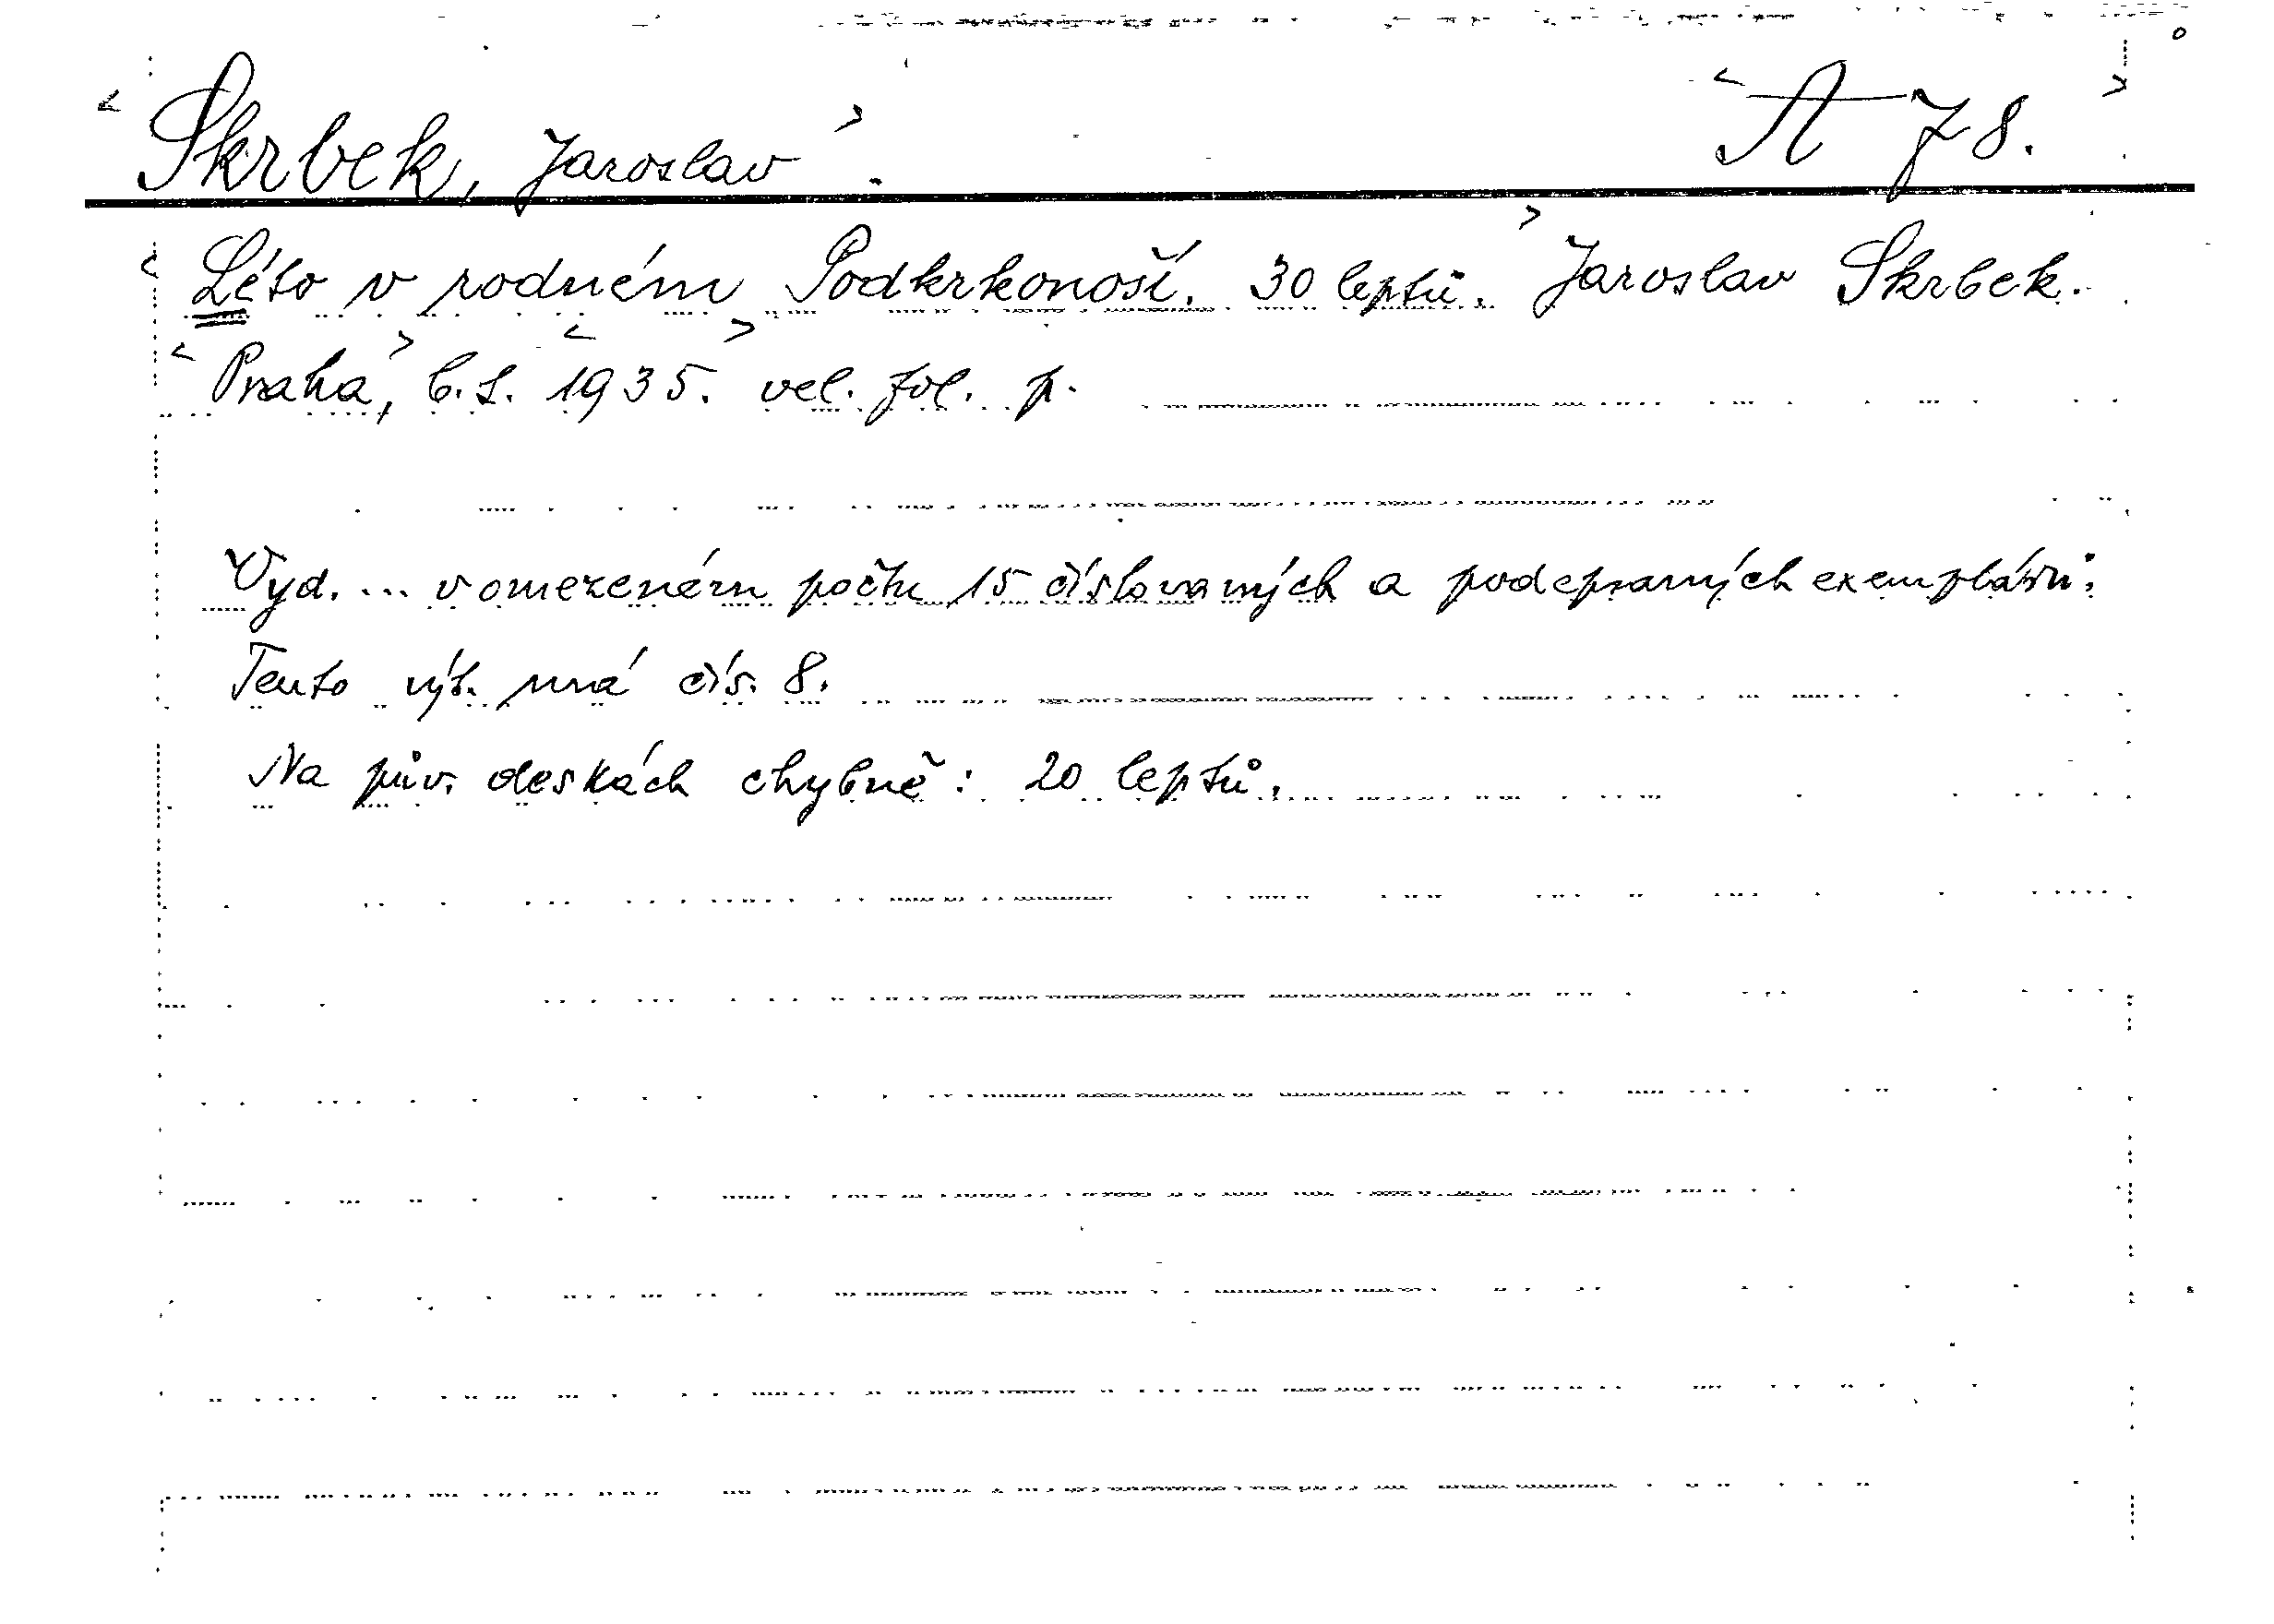 < Skrbek, Jaroslav >. < A 78. >
< Léto v rodném Podkrkonoší. 30 leptů. > Jaroslav Skrbek.
< Praha, > b.s. < 1935. > vel. fol. p.
Vyd. ... v omezeném počtu 15 číslovaných a podepsaných exemplářů.
Tento výt. má čís. 8.
Na pův. deskách chybně: 20 leptů.